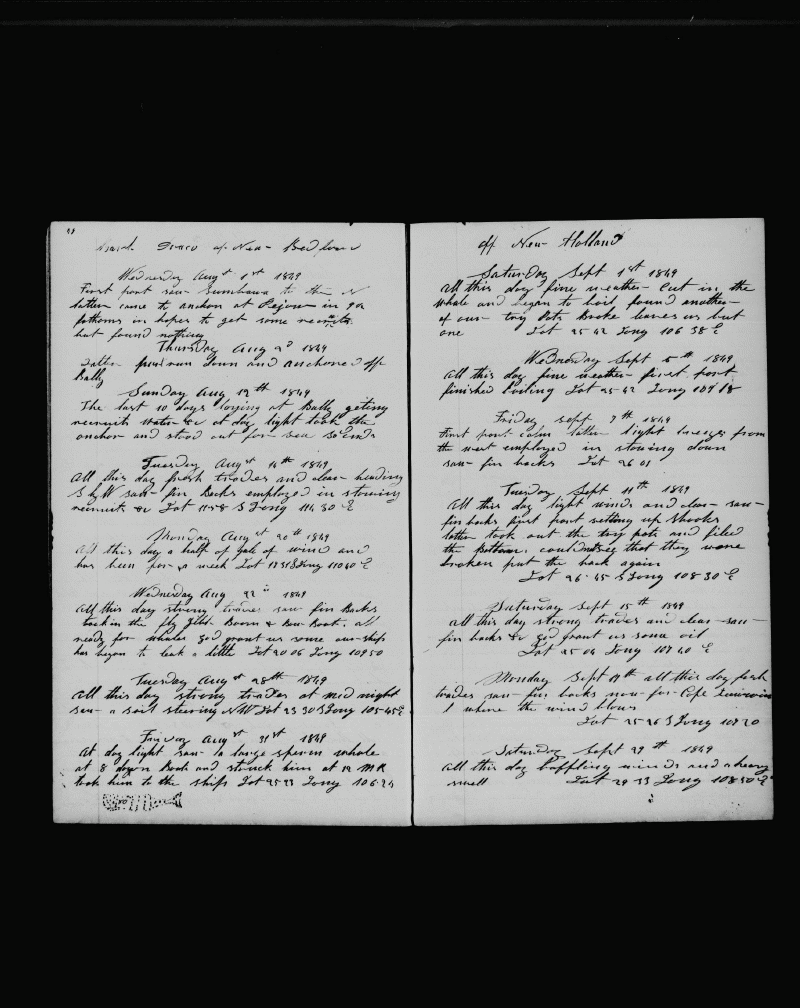 Bark of New Bedford
Wednesday Augst 1st 1849
First part saw Sumbawa to the N
latter came to anchor at in
fathoms in hopes to get some recruits
but found nothing
Thursday Aug 2d 1849
Latter part run down and anchored off
Bally
Sunday Aug 12th 1849
The last 10 days laying at Bally geting
recruits water &c at day light took the
anchor and stood out for sea
Tuesday Augst 14th 1849
all this day fresh trades and clear heading
S b W saw fin Backs employed in stowing
recruits &c Lat 11-58 S Long 114 30 E
Monday Augst 20th 1849
all this day a half of gale of wind and
has been for a week Lat Long 110 40 E
Wednesday Aug 22 1849
all this day strong trades saw fin Backs
took in the fly Jibb Boom & Bow Boat. all
ready for whales god grant us some our ship
has begun to leak a little Lat 20 06 Long 109 50
Tuesday Augst 28th 1849
all this day strong trades at mid night
saw a sail steering NW Lat 23 30 S Long 105-45 E
Friday Augst 31st 1849
at day light saw a large sperm whale
at 8 down Boats and struck him at 12 MR
took him to the ship Lat 25 23 Long 106 24
off New Holland
Saturday Sept 1st 1849
all this day fine weather Cut in the
whale and began to boil found another
of our try Pots Broke leaves us but
one Lat 25 42 Long 106 38 E
Wednesday Sept 5th 1849
all this day fine weather first part
finished boiling Lat 25 42 Long 107 18
Friday Sept 7th 1849
First part calm latter light breezes from
the west employed in stowing down
saw fin backs Lat 26 01
Tuesday Sept 11th 1849
All this day light winds and clear saw
fin backs first part setting up Shooks
latter took out the try pots and filed
the Bottoms. could not see that they were
broken put the back again
Lat 26-45 S Long 108 30 E
Saturday Sept 15th 1849
all this day strong trades and clear saw
fin backs &c god grant us some oil
Lat 25 04 Long 107 40 E
Monday Sept 17th all this day fresh
trades saw fin backs now for Cape
where the wind blows
Lat 25-26 S Long 107 20
Saturday Sept 29th 1849
all this day baffling winds and a heavy
swell Lat 29 33 Long 108 50 E